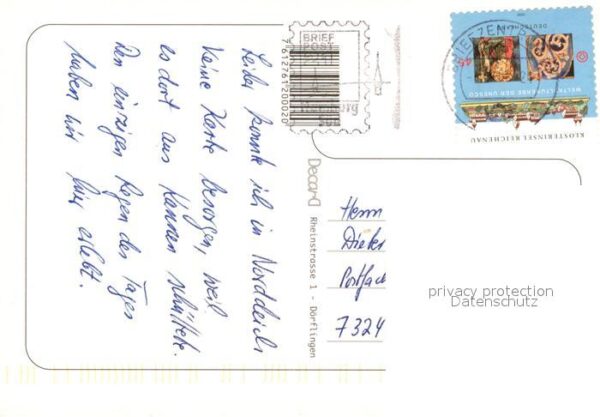 Leider konnte ich in Norddeich
keine Karte besorgen, weil
es dort aus Kannen schüttete.
Den einzigen Regen des Tages
haben wir hier erlebt.
BRIEF
POST
7612761200020
Decard
Rheinstrasse 1 - Dörflingen
Herrn
Dieter
Postfach
7324
privacy protection
Datenschutz
DEUTSCHLAND
WELTKULTURERBE DER UNESCO
KLOSTERINSEL REICHENAU